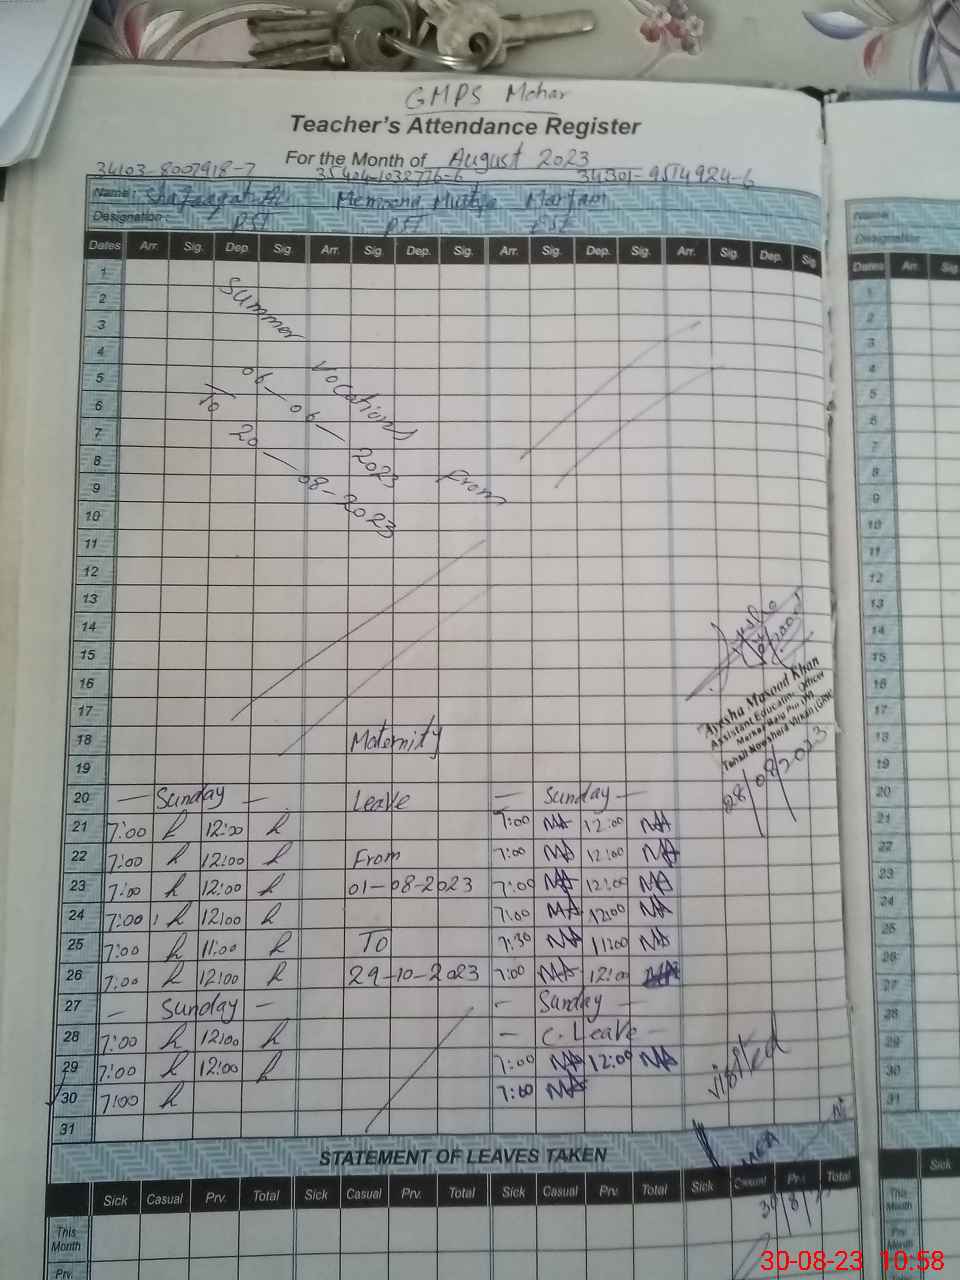 GMPS Mohar
Teacher's Attendance Register
For the Month of August 2023
34103-8007918-7 35404-1032776-6 34301-9514924-6
Name: Memoona Mariam
Designation: PST PST PST
Dates Arr. Sig. Dep. Sig. Arr. Sig. Dep. Sig. Arr. Sig. Dep. Sig. Arr. Sig. Dep. Sig
1
2
3
4
5
6
7
8
9
10
11
12
13
14
15
16
17
18
19
Summer Vocations From
06-06-2023
To
20-08-2023
Maternity
20 — Sunday — Leave — Sunday —
21 7:00 12:00 7:00 MA 12:00 MA
22 7:00 12:00 From 7:00 MA 12:00 MA
23 7:00 12:00 01-08-2023 7:00 MA 12:00 MA
24 7:00 12:00 7:00 MA 12:00 MA
25 7:00 11:00 To 7:30 MA 11:00 MA
26 7:00 12:00 29-10-2023 7:00 MA 12:00 MA
27 — Sunday — — Sunday —
28 7:00 12:00 — C. Leave —
29 7:00 12:00 7:00 MA 12:00 MA
30 7:00 7:00 MA
31
Ayesha Masood Khan
Assistant Education Officer
28/08/2023
visited
MEA
30/8/
STATEMENT OF LEAVES TAKEN
Sick Casual Prv. Total Sick Casual Prv. Total Sick Casual Prv. Total Sick Casual Prv. Total
This Month
Prv.
Name:
Designation
Dates Arr. Sig
1
2
3
4
5
6
7
8
9
10
11
12
13
14
15
16
17
18
19
20
21
22
23
24
25
26
27
28
29
30
31
Sick
This Month
Prv. Month
30-08-23 10:58